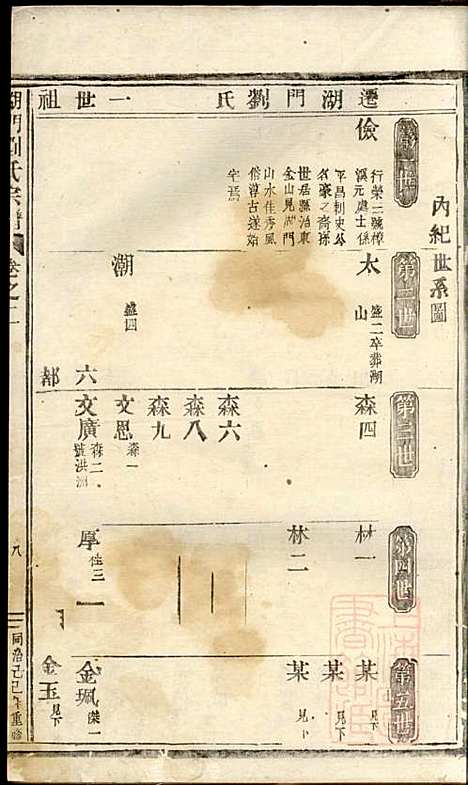 內紀世系圖
遷湖門劉氏一世祖
第一世
儉
行榮三號樟
溪元處士係
平昌刺史公
名豪之裔孫
世居縣治東
金山見湖門
山水佳秀風
俗淳古遂始
宅焉
第二世
太
山
盛二卒葬湖
潮
盛四
六
都
第三世
森四
森六
森八
森九
文恩
森一
文廣
森二
號洪洲
第四世
林一
林二
厚
桂三
第五世
某
見下
某
見下
某
見下
金珮
傑一
金玉
見下
湖門劉氏宗譜
卷之二
八
同治己巳年重修